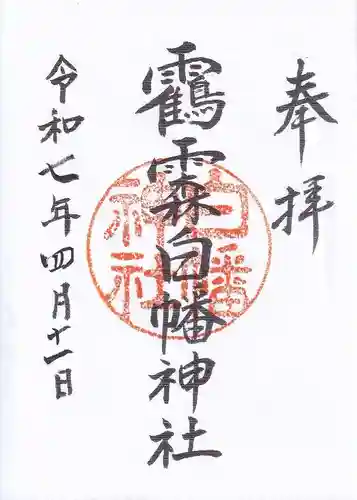 奉拝
鶴霖白幡神社
白幡
神社
令和七年四月十一日